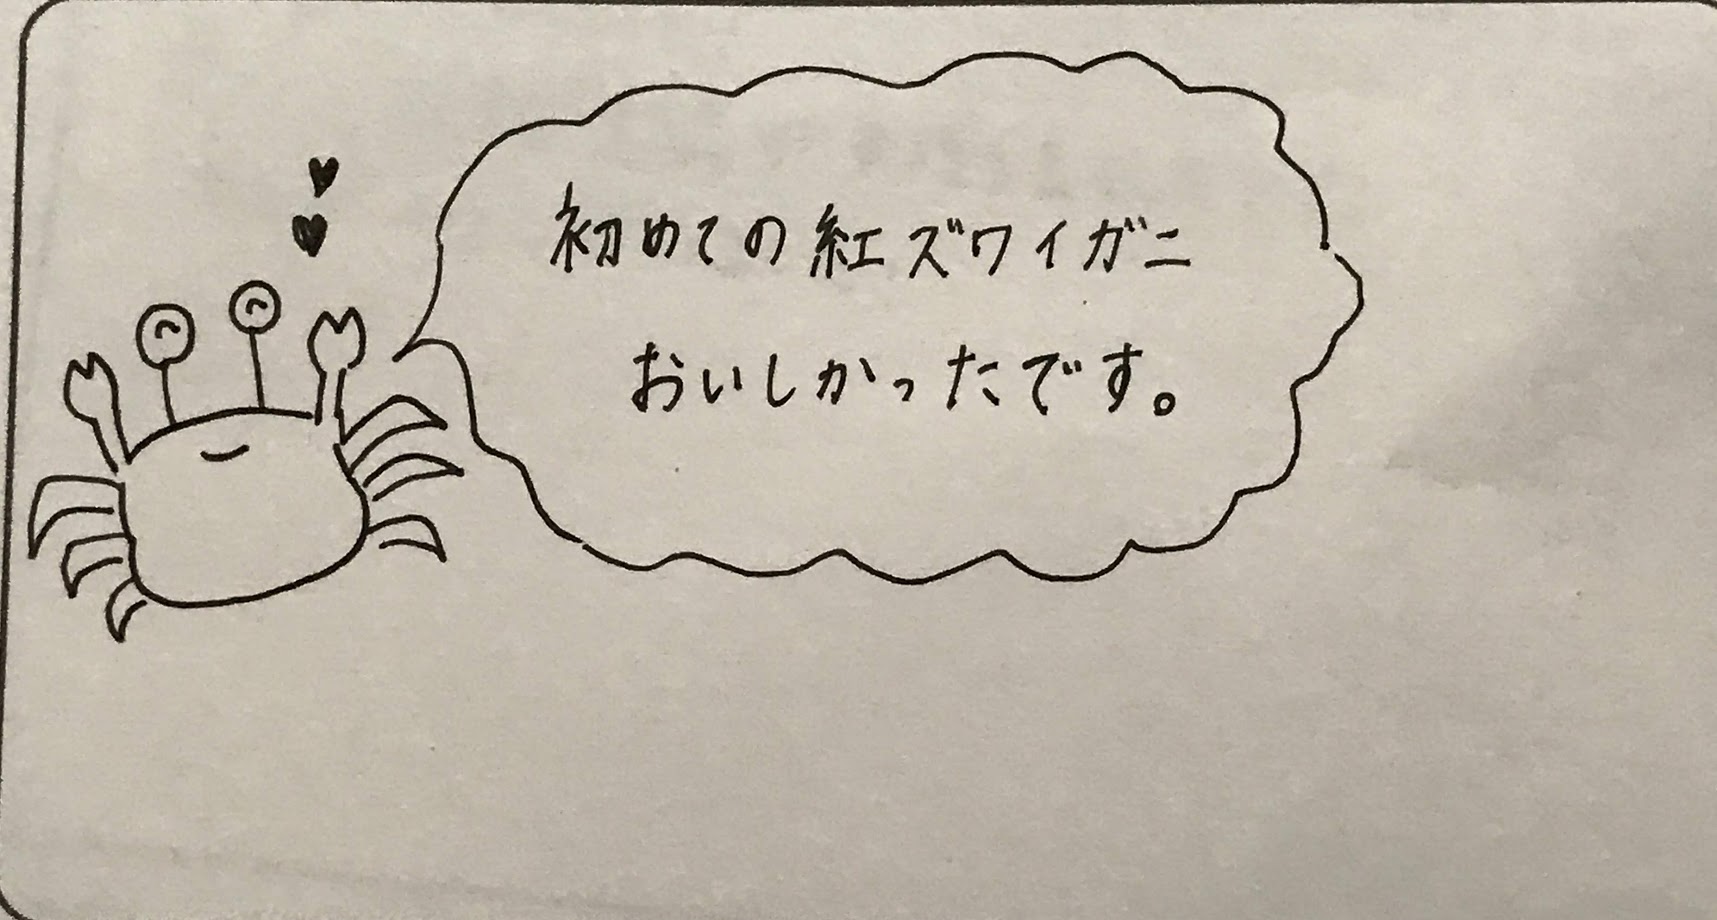 初めての紅ズワイガニ
おいしかったです。